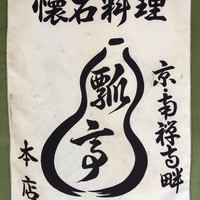 懐石料理
瓢亭
京・南禅寺畔
本店